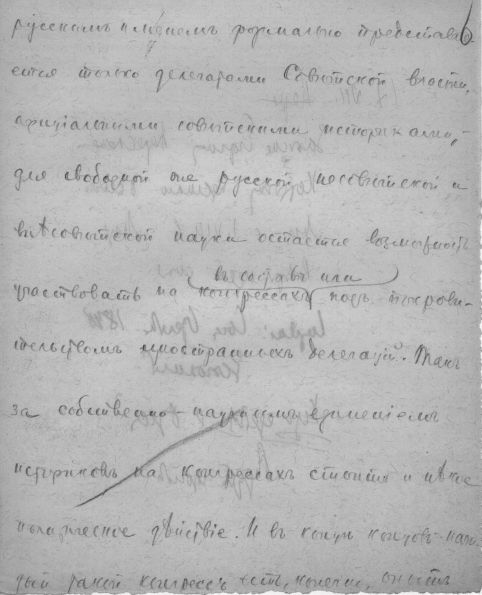 6
русскимъ именемъ формально представля-
ется только делегатами Совѣтской власти,
офиціальными совѣтскими историками,-
для свободной же русской несовѣтской и
внѣсовѣтской науки остается возможность
въ составѣ или
участвовать на конгрессахъ подъ покрови-
тельствомъ иностранныхъ делегацій. Такъ
за собственно-научнымъ единеніемъ
историковъ на конгрессахъ стоитъ и нѣкое
политическое дѣйствіе. И въ концѣ концовъ каж-
дый такой конгрессъ есть, конечно,